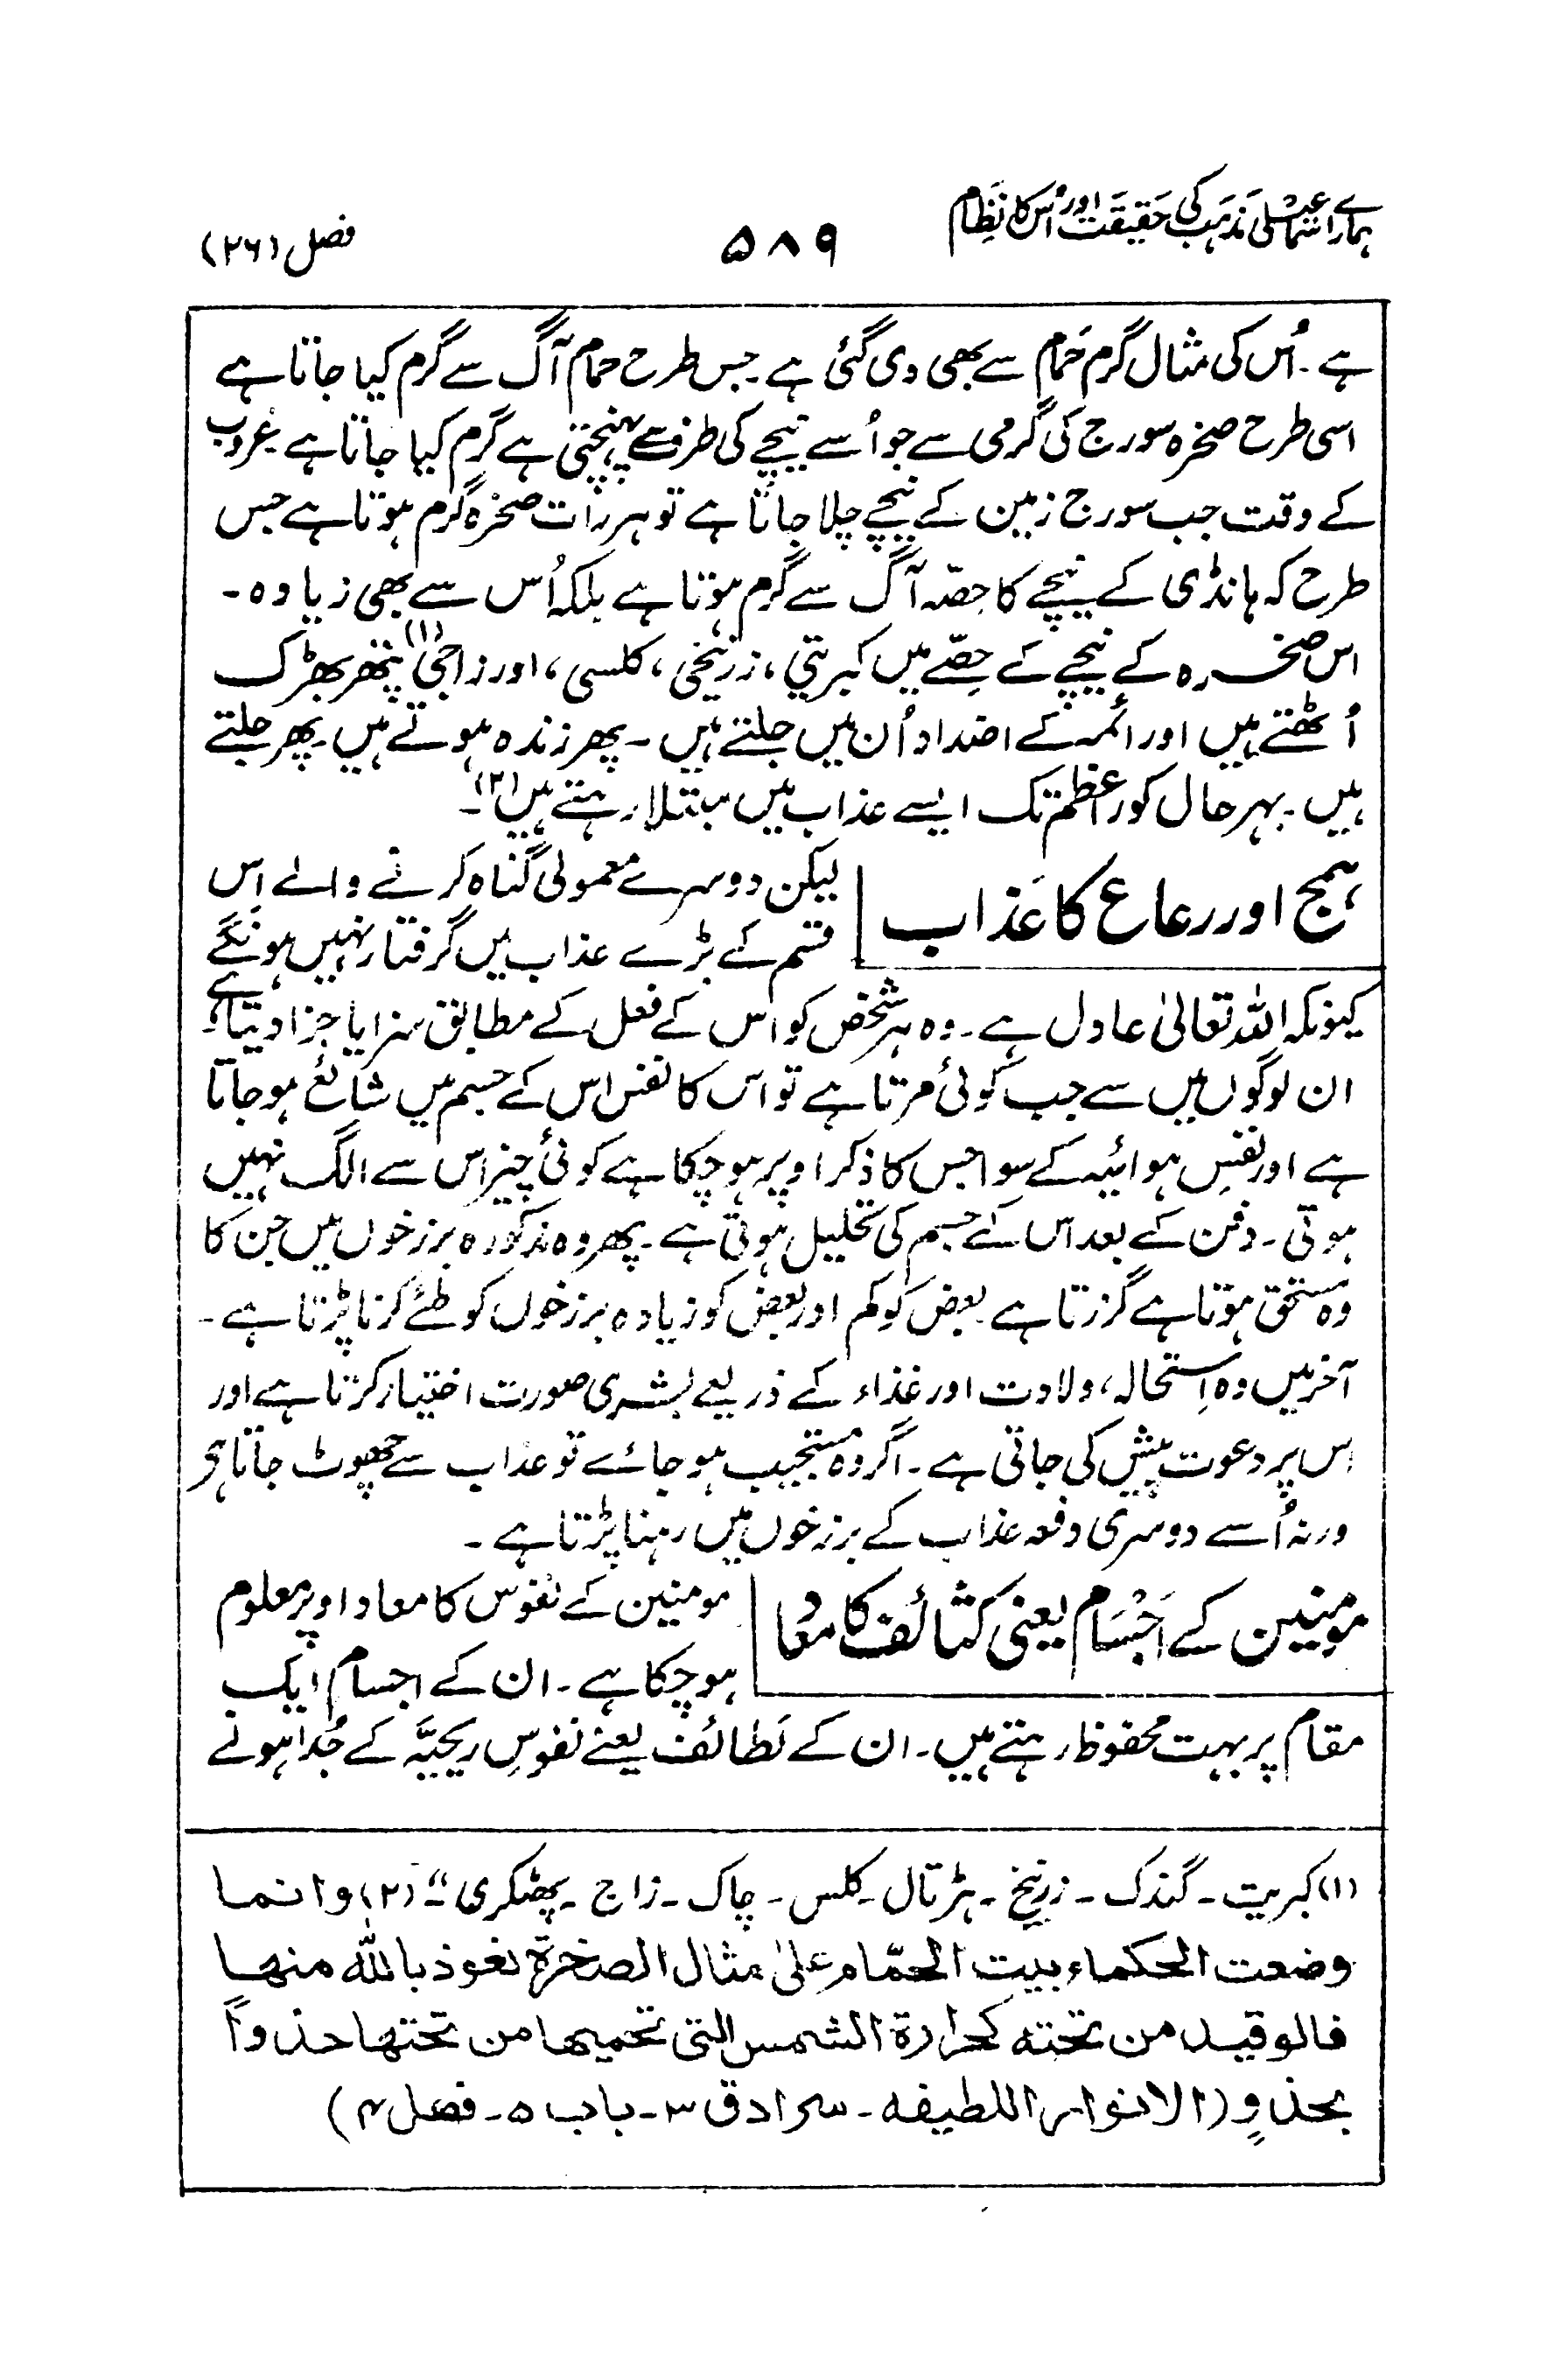 ہمارے اسمٰعیلی مذہب کی حقیقت اور اُس کا نظام
۵۸۹
فصل (۲۶)
ہے۔ اُس کی مثال گرم حَمام سے بھی دی گئی ہے۔ جس طرح حمام آگ سے گرم کیا جاتا ہے
اسی طرح صخرہ سورج کی گرمی سے جو اُسے نیچے کی طرف سے پہنچتی ہے گرم کیا جاتا ہے۔ غروب
کے وقت جب سورج زمین کے نیچے چلا جاتا ہے تو ہر رات صخرہ گرم ہوتا ہے جس
طرح کہ ہانڈی کے نیچے کا حصّہ آگ سے گرم ہوتا ہے بلکہ اُس سے بھی زیادہ۔
اس صخرہ کے نیچے کے حصّے میں کبریتی، زرنیخی، کلسی، اور زاجی(۱) پتھر بھڑک
اُٹھتے ہیں اور ائمہ کے اضداد اُن میں جلتے ہیں۔ پھر زندہ ہوتے ہیں۔ پھر جلتے
ہیں۔ بہر حال کور اعظم تک ایسے عذاب میں مبتلا رہتے ہیں(۲)۔
ہمج اور رعاع کا عَذاب
لیکن دوسرے معمولی گناہ کرنے والے اِس
قسم کے بڑے عذاب میں گرفتار نہیں ہونگے
کیونکہ اللہ تعالیٰ عادل ہے۔ وہ ہر شخص کو اس کے فعل کے مطابق سزا یا جزا دیتا ہے۔
ان لوگوں میں سے جب کوئی مرتا ہے تو اس کا نفس اس کے جسم میں شائع ہو جاتا
ہے اور نفسِ ہوائیہ کے سِوا جس کا ذکر اوپر ہو چکا ہے کوئی چیز اس سے الگ نہیں
ہوتی۔ دفن کے بعد اس کے جسم کی تحلیل ہوتی ہے۔ پھر وہ مذکورہ برزخوں میں جن کا
وہ مستحق ہوتا ہے گزرتا ہے بعض کو کم اور بعض کو زیادہ برزخوں کو طئے کرنا پڑتا ہے۔
آخر میں وہ اِستحالہ، ولادت اور غذاء کے ذریعے بشری صورت اختیار کرتا ہے اور
اس پر دعوت پیش کی جاتی ہے۔ اگر وہ مستجیب ہو جائے تو عذاب سے چھوٹ جاتا ہی
ورنہ اُسے دوسری دفعہ عذاب کے برزخوں میں رہنا پڑتا ہے۔
مومنین کے اَجْسَام یعنی کثائف کا معاد
مومنین کے نفوس کا معاد اوپر معلوم
ہو چکا ہے۔ ان کے اجسام ایک
مقام پر بہت محفوظ رہتے ہیں۔ ان کے لَطائف یعنے نفوسِ ریحیَّہ کے جُدا ہونے
(۱) کبریت۔ گندک۔ زرنیخ۔ ہڑتال۔ کلس۔ چاک۔ زاج۔ پھٹکری"۔ (۲) وانما
وضعت الحکماء بیت الحمّام علیٰ مثال الصخرۃ نعوذ باللہ منھا
فالوقید من تحتہ کحرارۃ الشمس التی تحمیھا من تحتھا حذواً
بحذوٍ (الانوار اللطیفہ۔ سرادق ۳۔ باب ۵۔ فصل ۴)